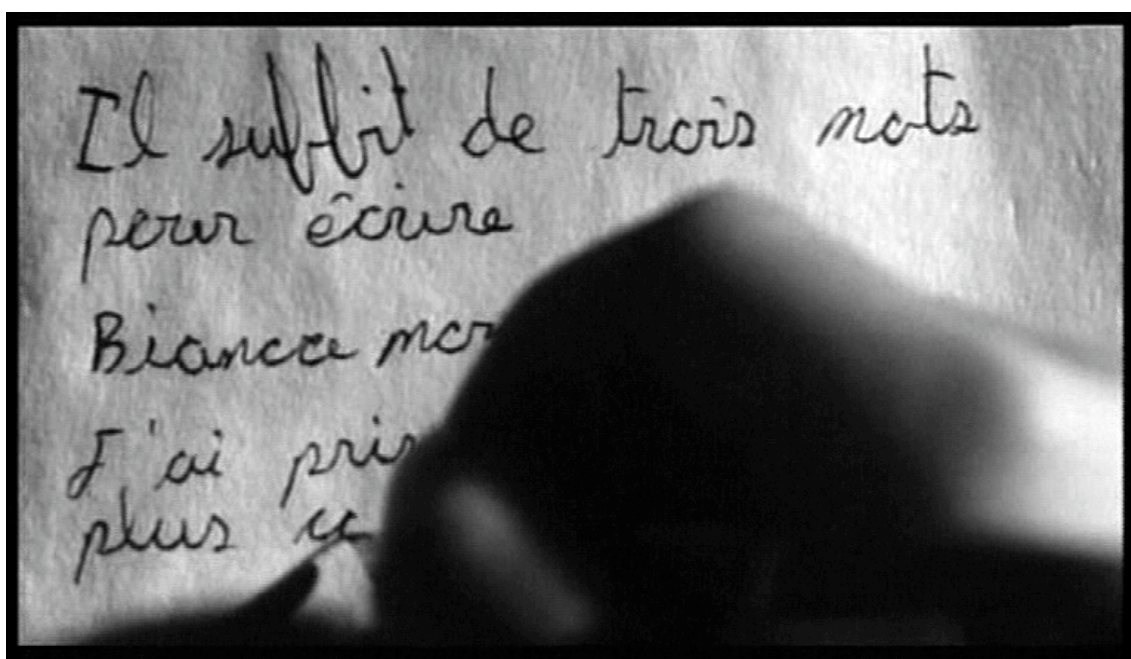 Il suffit de trois mots
pour écrire
Bianca
J'ai pris
plus